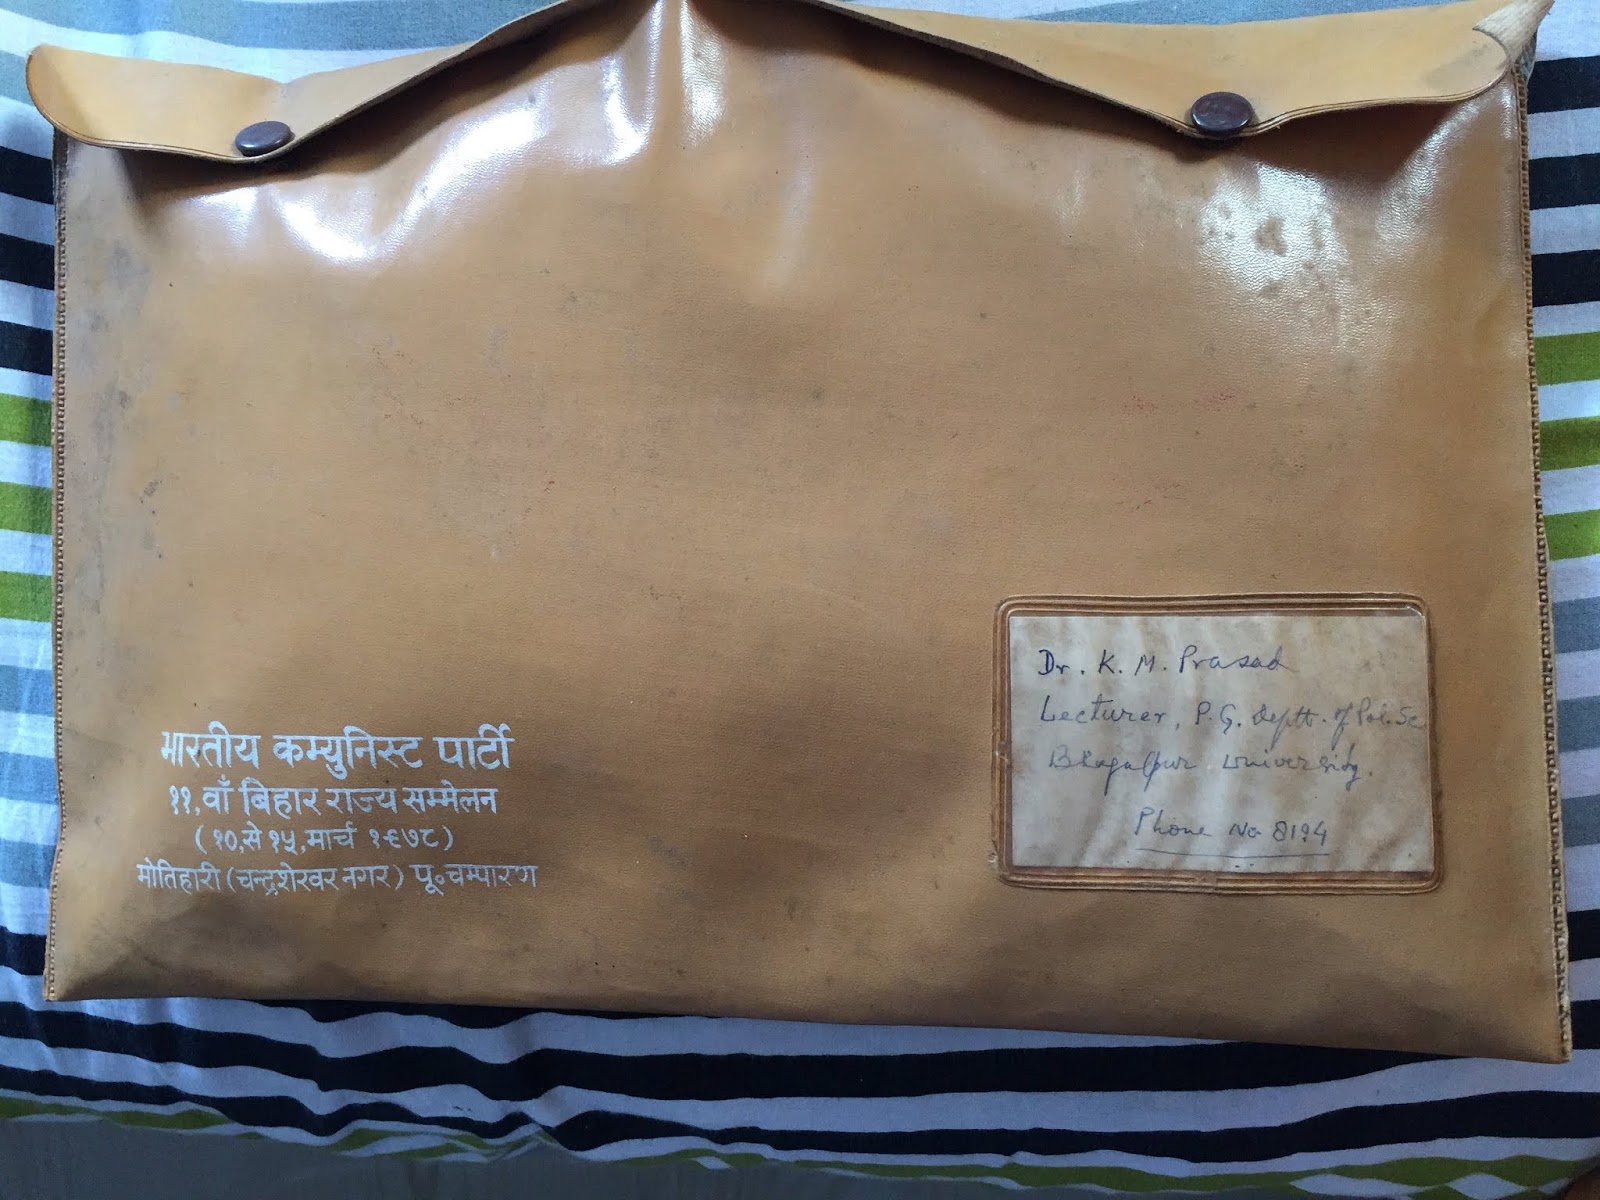 भारतीय कम्युनिस्ट पार्टी
११,वाँ बिहार राज्य सम्मेलन
(१०,से १५,मार्च १९७८)
मोतिहारी (चन्द्रशेखर नगर) पू॰ चम्पारण
Dr. K. M. Prasad
Lecturer, P.G. Deptt. of Pol. Sc
Bhagalpur University.
Phone No 8194